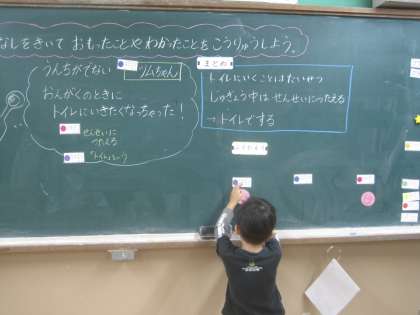 なしをきいて おもったことや わかったことを こうりゅうしよう。
うんちがでない
ツムちゃん
おんがくのときに
トイレにいきたくなっちゃった!
せんせいに
つたえる
まとめ
トイレにいくことはたいせつ
じゅぎょう中は せんせいにつたえる
→ トイレでする